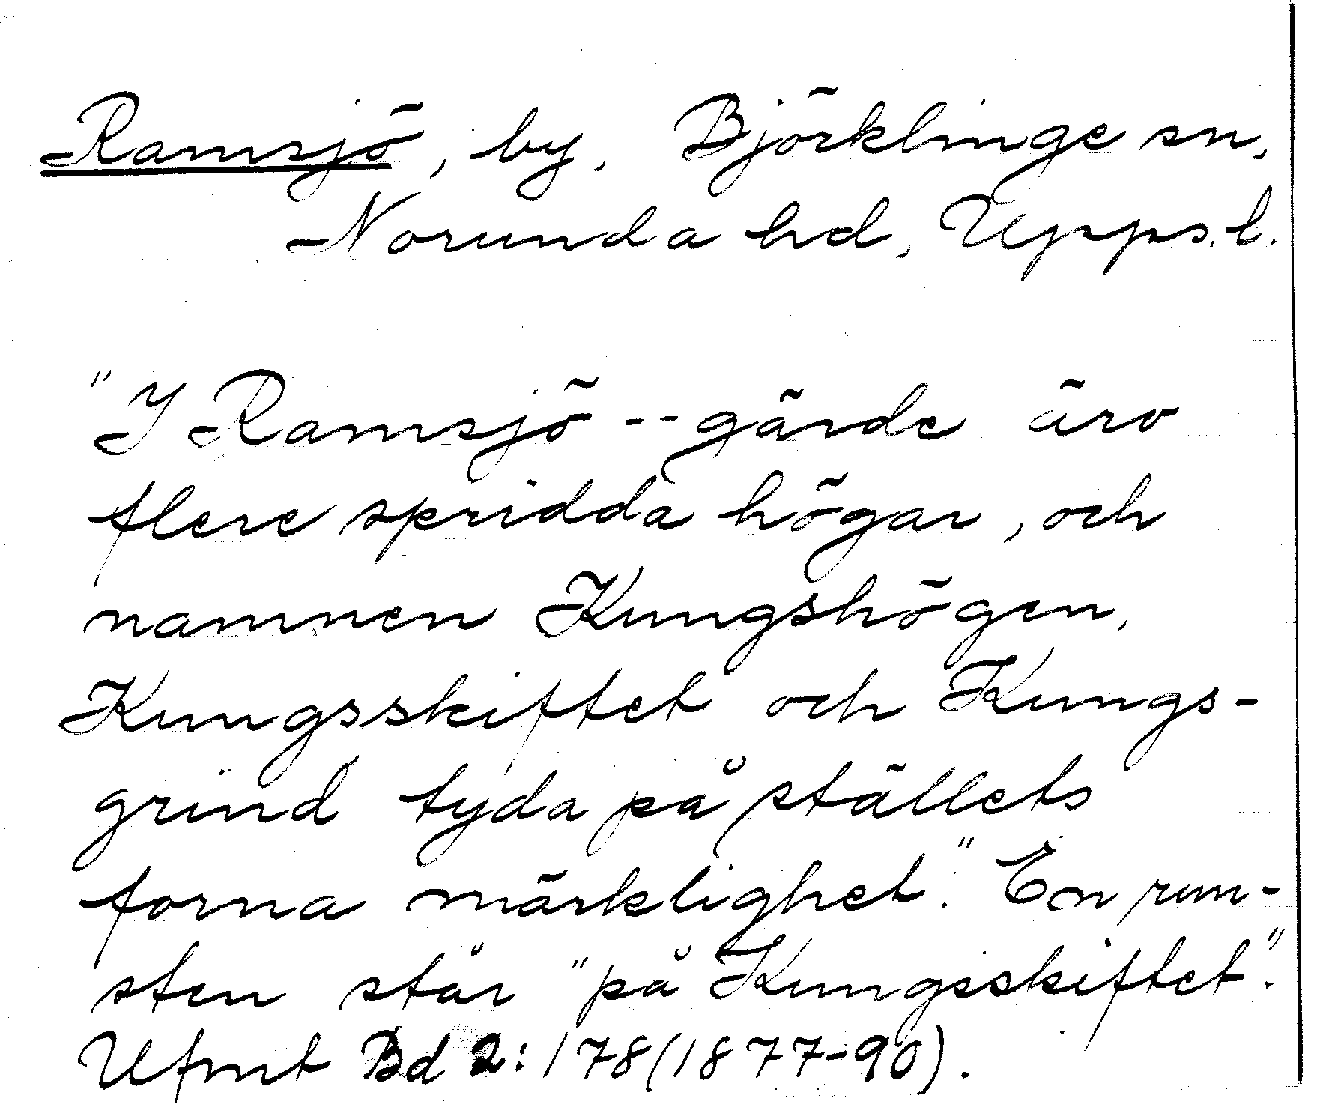 Ramsjö, by, Björklinge sn,
Norunda hd, Upps.l.
"I Ramsjö -- gärde äro
flere spridda högar, och
namnen Kungshögen,
Kungsskiftet och Kungs-
grind tyda på ställets
forna märklighet." En run-
sten står "på Kungsskiftet".
Ufmt Bd 2: 178 (1877-90).